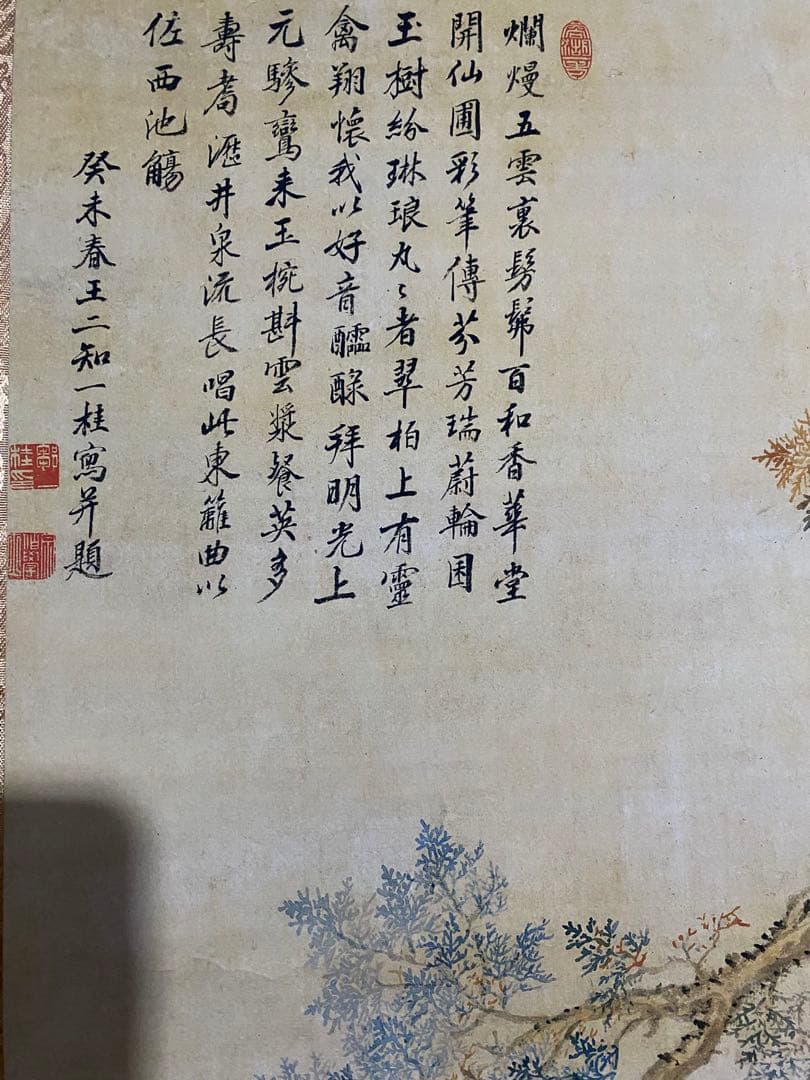 爛熳五雲裏髣髴百和香華堂
開仙圃彩筆傳芬芳瑞蔚輪囷
玉樹紛琳琅丸〻者翠柏上有靈
禽翔懷我以好音醽醁拜明光上
元驂鸞来玉椀斟雲漿餐英多
壽耈瀝井泉流長唱此東籬曲以
佐西池觴
癸未春王二知一桂寫并題
鄒一桂印